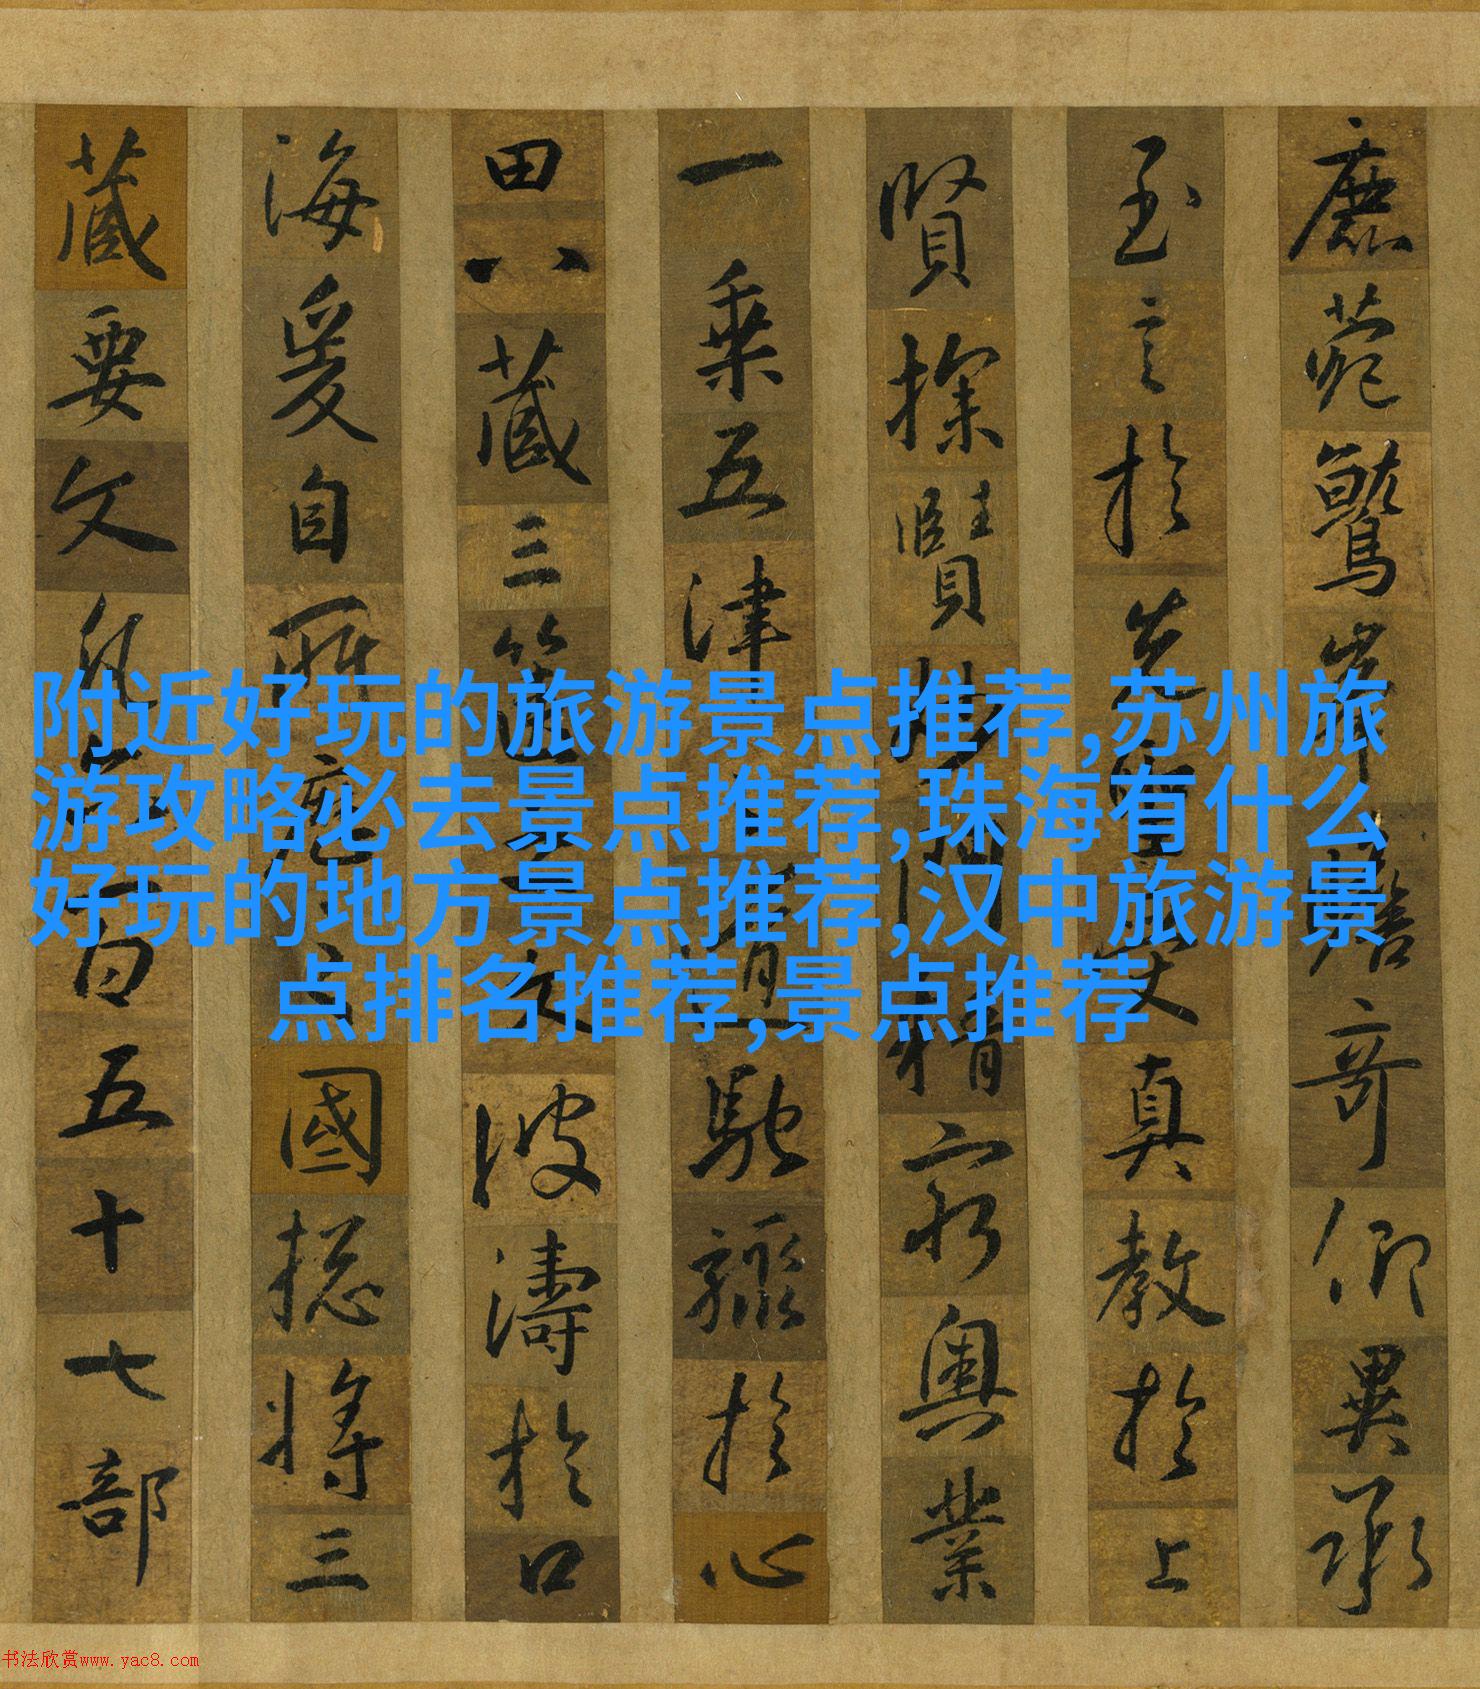 附近好玩的旅游景点推荐,苏州旅
游攻略必去景点推荐,珠海有什么
好玩的地方景点推荐,汉中旅游景
点排名推荐,景点推荐
鹿苑鷲峯瞻奇仰異承
至言於先真教於上
賢探賾妙門精窮奧業
一乘五津道馳驟於心
田八藏三篋文波濤於口
海爰自所國揔將三
藏要文凡百五十七部
书法欣赏www.yac8.com